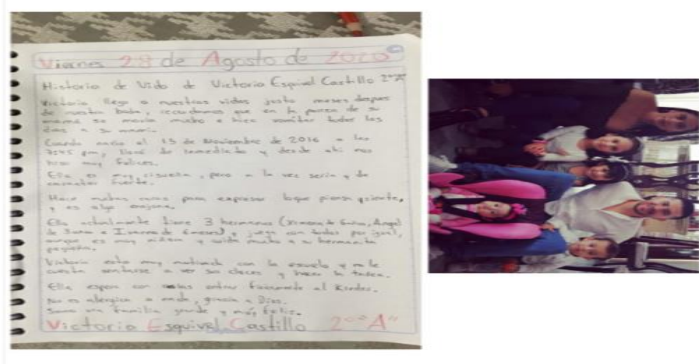 Viernes 28 de Agosto de 2020
Historia de Vida de Victoria Esquivel Castillo 2°"A"
Victoria llego a nuestras vidas justo meses despues
de nuestra boda, recordamos que en la panza de su
mamá se movia mucho e hizo vomitar todos los
dias a su mami.
Cuando nacio el 13 de Noviembre de 2016 a las
7:45 pm, lloró de inmediato y desde ahi nos
hizo muy felices.
Ella es muy risueña, pero a la vez seria y de
caracter fuerte.
Hace muchas caras para expresar lo que piensa y siente,
y es algo enojona.
Ella actualmente tiene 3 hermanos (Ximena de 6 años, Angel
de 3 años e Ivanna de 6 meses), y juega con todos por igual,
aunque es muy y cuida mucho a su hermanita
pequeña.
Victoria esta muy motivada con la escuela y no le
cuesta sentarse a ver sus clases y hacer la tarea.
Ella espera con ansias entrar fisicamente al Kinder.
No es alergica a nada, gracias a Dios.
Somos una familia grande y muy feliz.
Victoria Esquivel Castillo 2°"A"